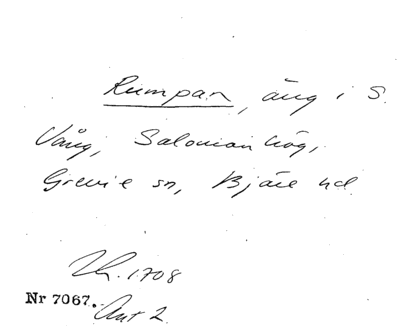 Rumpan, äng i S.
Vång, Salomonhög,
Grevie sn, Bjäre hd.
Lh. 1708
Nr 7067. Ant 2